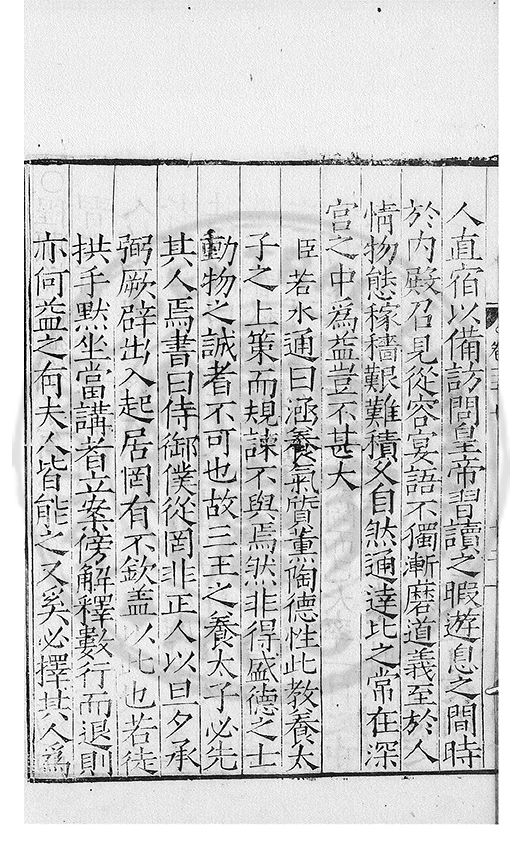 人直宿以備訪問皇帝習讀之暇遊息之間時
於内殿召見從容宴語不獨漸磨道義至於人
情物態稼穡艱難積久自然通達比之常在深
宫之中爲益豈不甚大
臣若水通曰涵養氣質薰陶德性此教養太
子之上策而規諫不與焉然非得盛德之士
動物之誠者不可也故三王之養太子必先
其人焉書曰侍御僕從罔非正人以旦夕承
弼厥辟出入起居罔有不欽盖以此也若徒
拱手默坐當講者立案傍解釋數行而退則
亦何益之有夫人皆能之又奚必擇其人爲